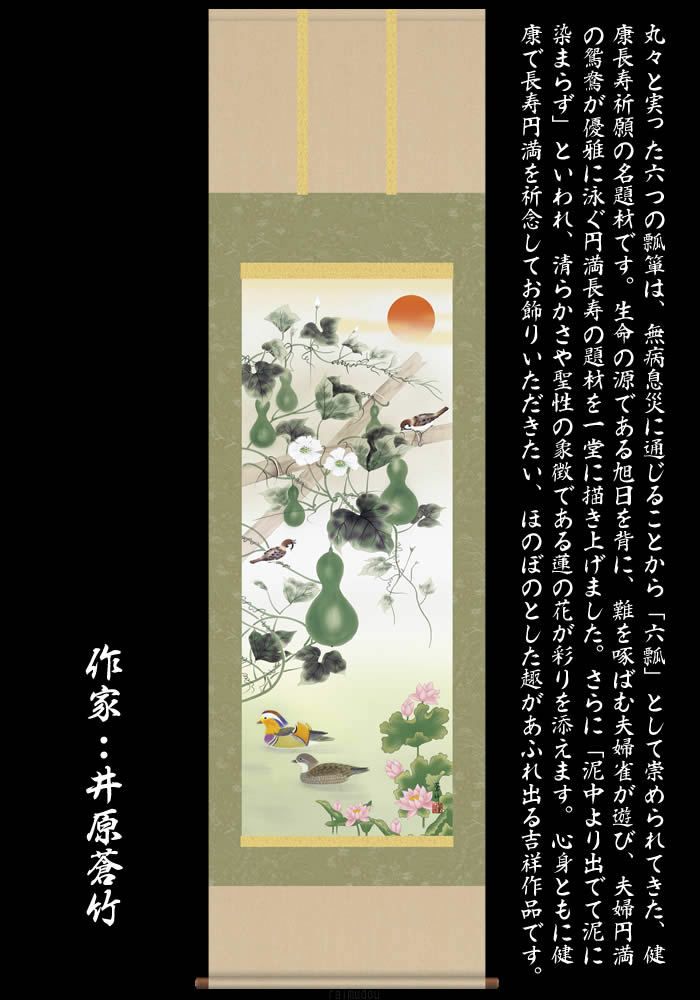 丸々と実った六つの瓢箪は、無病息災に通じることから「六瓢」として崇められてきた、健
康長寿祈願の名題材です。生命の源である旭日を背に、難を啄ばむ夫婦雀が遊び、夫婦円満
の鴛鴦が優雅に泳ぐ円満長寿の題材を一堂に描き上げました。さらに「泥中より出でて泥に
染まらず」といわれ、清らかさや聖性の象徴である蓮の花が彩りを添えます。心身ともに健
康で長寿円満を祈念してお飾りいただきたい、ほのぼのとした趣があふれ出る吉祥作品です。
作家：井原蒼竹
raimudou